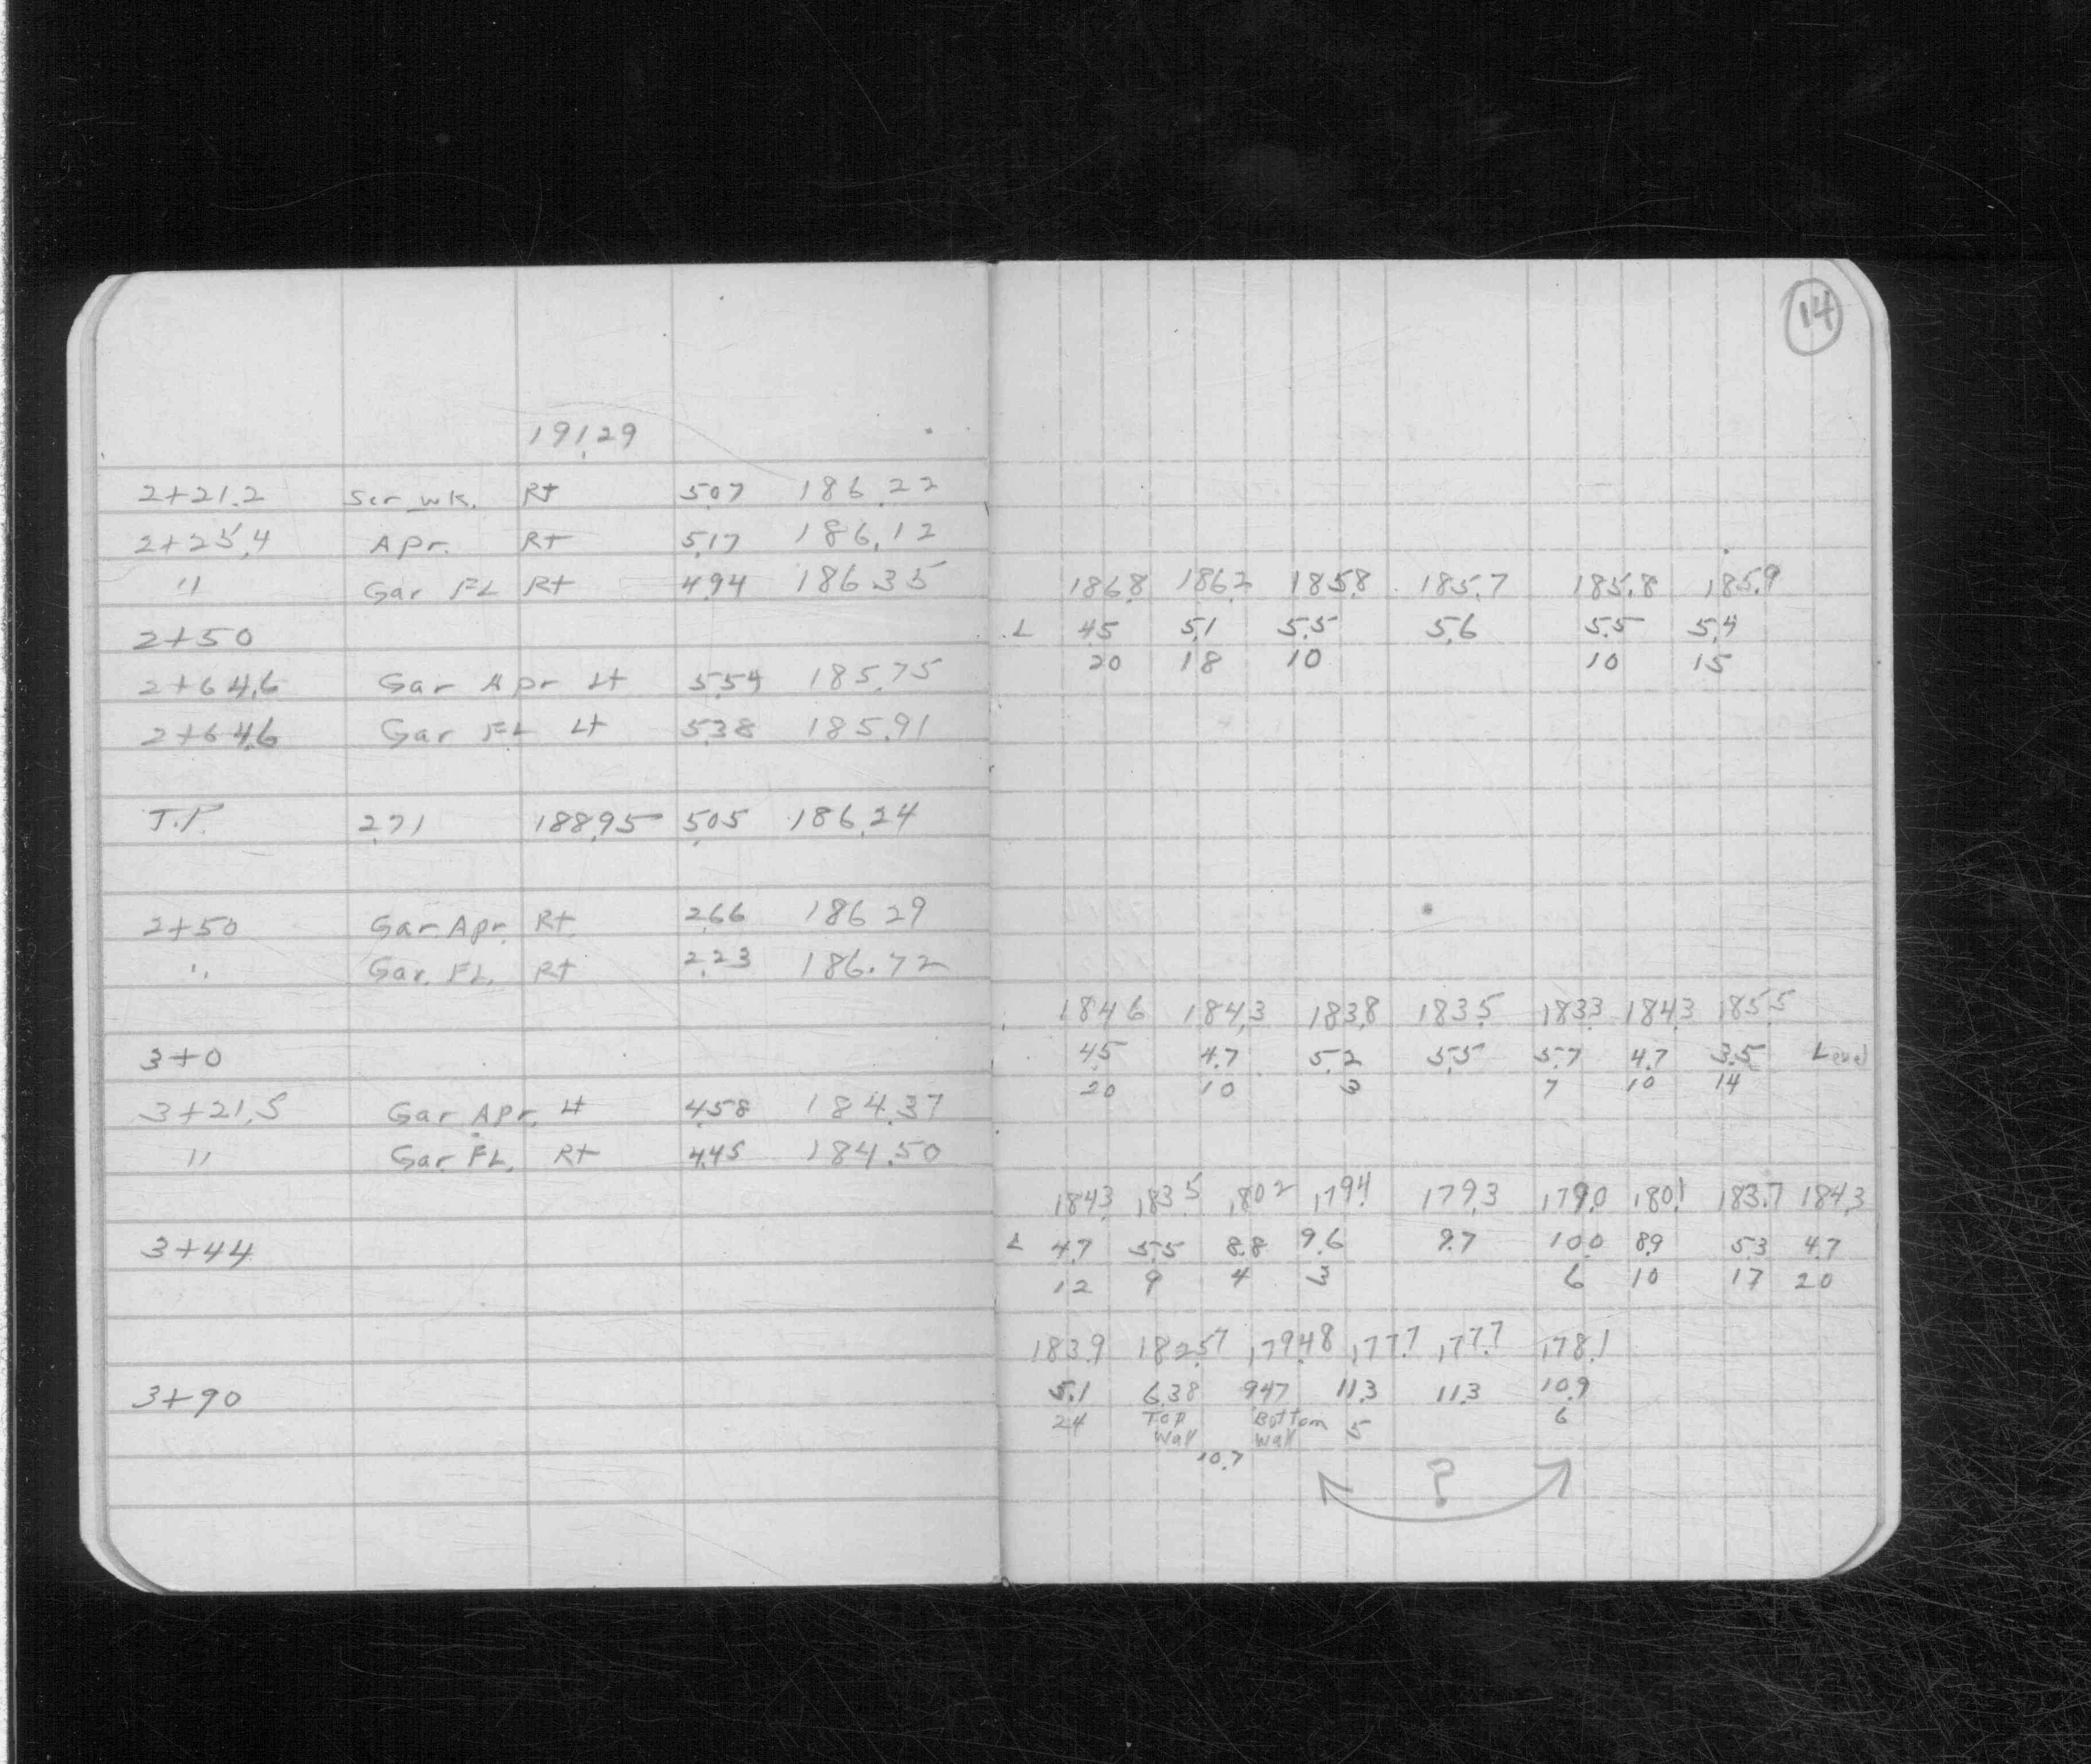 14
191.29
2+21.2 Ser wk. Rt 5.07 186.22
2+25.4 Apr. Rt 5.17 186.12
" Gar FL Rt 4.94 186.35
186.8 186.2 185.8 185.7 185.8 185.9
2+50 L 4.5 5.1 5.5 5.6 5.5 5.4
20 18 10 10 15
2+64.6 Gar Apr Lt 5.54 185.75
2+64.6 Gar FL Lt 5.38 185.91
T.P. 2.71 188.95 5.05 186.24
2+50 Gar. Apr. Rt. 2.66 186.29
" Gar. FL. Rt 2.23 186.72
184.6 184.3 183.8 183.5 183.3 184.3 185.5
3+0 4.5 4.7 5.2 5.5 5.7 4.7 3.5 Level
20 10 3 7 10 14
3+21.5 Gar Apr. Lt 4.58 184.37
" Gar. FL. Rt 4.45 184.50
184.3 183.5 180.2 179.4 179.3 179.0 180.1 183.7 184.3
3+44 L 4.7 5.5 8.8 9.6 9.7 10.0 8.9 5.3 4.7
12 9 4 3 6 10 17 20
183.9 182.57 179.48 177.7 177.7 178.1
3+90 5.1 6.38 9.47 11.3 11.3 10.9
24 Top Wall Bottom Wall 5 6
10.7
?